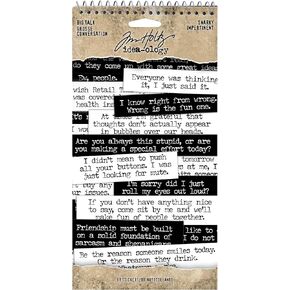 BIG TALK
GROSSE
CONVERSATION
Tim Holtz
idea-ology
SNARKY
IMPERTINENT
do they come up with some great ideas
Eu, people.
Everyone was thinking
it, I just said it.
wish Retail
I know right from wrong.
Wrong is the fun one.
grateful that
thoughts don't actually appear
in bubbles over our heads.
Are you always this stupid, or are
you making a special effort today?
I didn't mean to push
all your buttons. I was
just looking for mute.
tomorrow
at my
I'm sorry did I just
roll my eyes out loud?
If you don't have anything nice
to say, sit by me and we'll
make fun of people together.
Friendship must be built
on a solid foundation of
sarcasm and shenanigans.
like to
I do not
Be the reason someone smiles today.
Or the reason they drink.